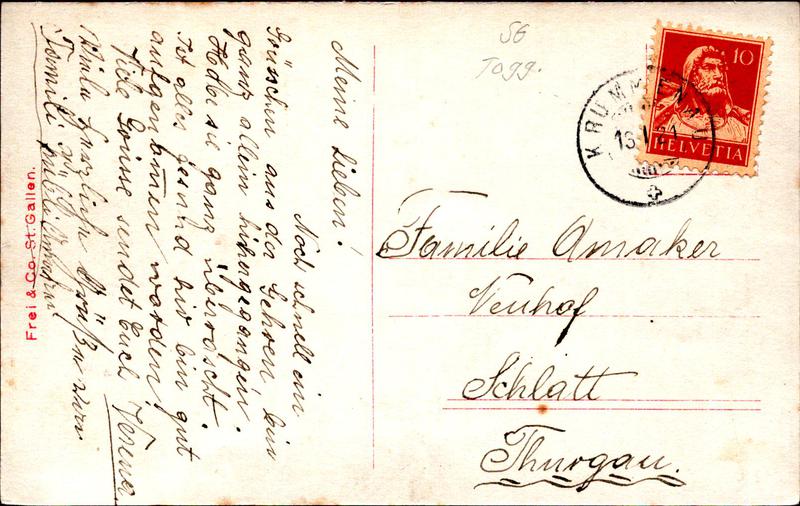 Meine Lieben!
Noch schnell ein
Grüsschen aus der Schwen bin
ganz allein höhergegangen.
Habe sie ganz überrascht.
Ist alles gesund hir bin gut
aufgenommen worden.
Viele Grüsse sendet Euch Verena.
herzliche Grüße von
Familie
Frei & Co. St. Gallen.
SG
Togg.
10
HELVETIA
KRUMMENAU
Familie Amaker
Neuhof
Schlatt
Thurgau.